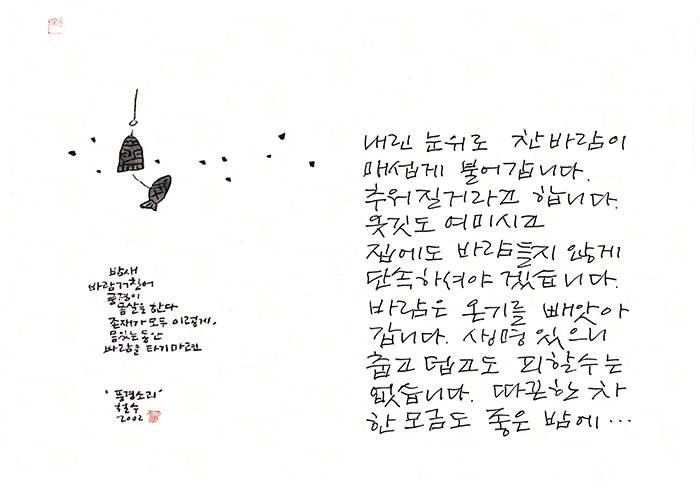 밤새
바람거칠어
풍경이
몸살을 한다
존재가 모두 이렇게,
몸있는 동안
바람을 타기 마련
'풍경소리'
철수
2002
내린 눈위로 찬바람이
매섭게 불어갑니다.
추워질거라고 합니다.
옷깃도 여미시고
집에도 바람들지 않게
단속하셔야 겠습니다.
바람은 온기를 빼앗아
갑니다. 생명 있으니
춥고 덥고도 피할수는
없습니다. 따끈한 차
한 모금도 좋은 밤에...